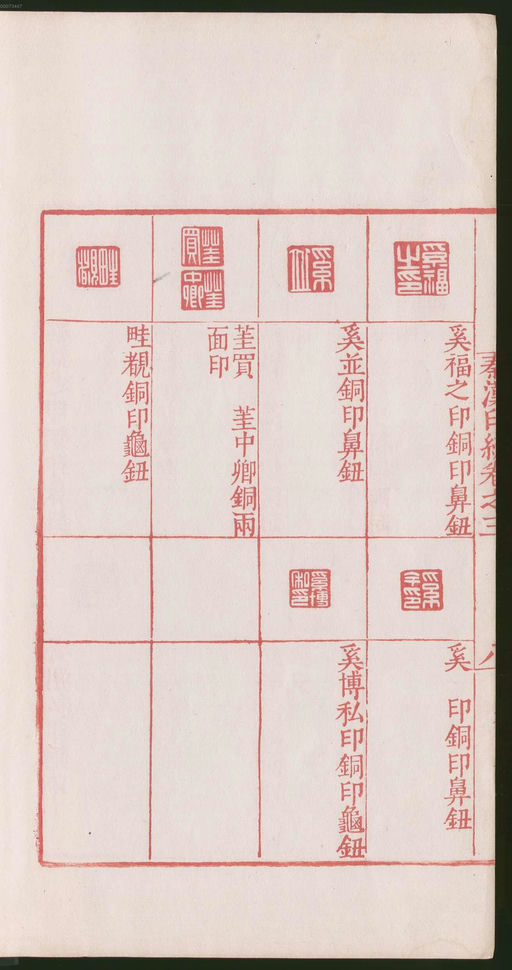 秦漢印統卷之三
八
奚福之印銅印鼻鈕
奚並銅印鼻鈕
荎買　荎中卿銅兩
面印
畦覩銅印龜鈕
奚　印銅印鼻鈕
奚博私印銅印龜鈕